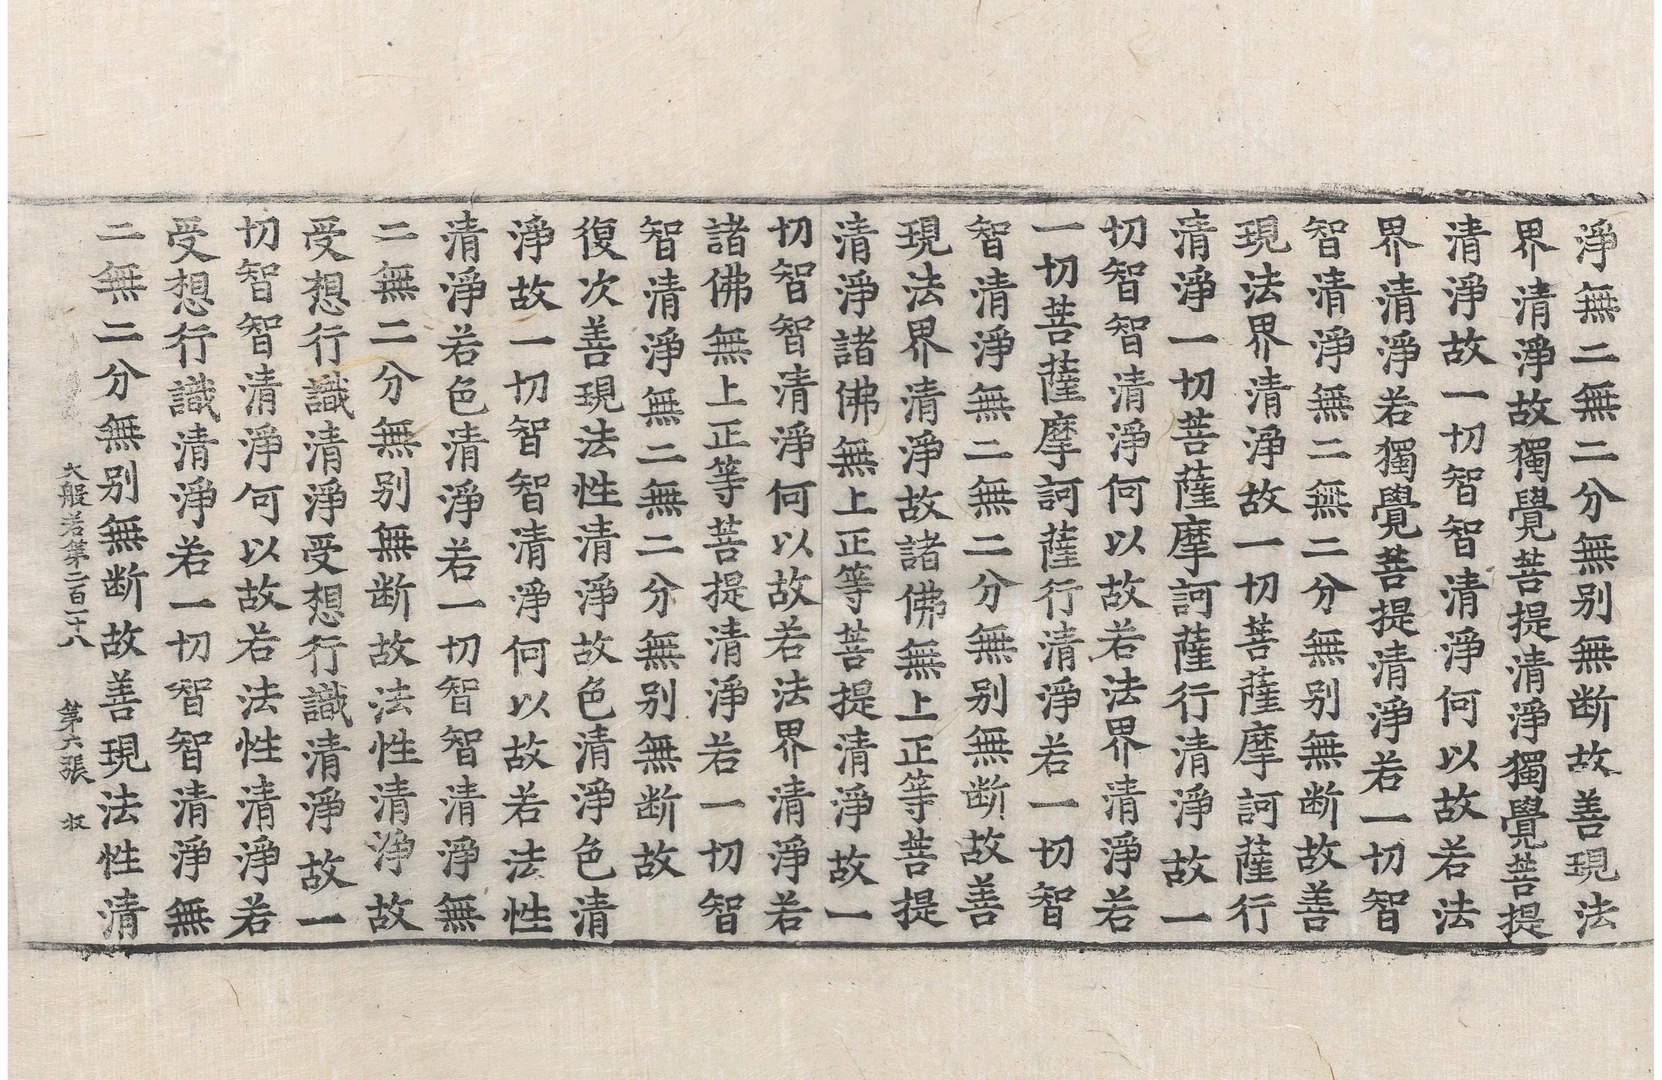 淨無二無二分無别無断故善現法
界清淨故獨覺菩提清淨獨覺菩提
清淨故一切智智清淨何以故若法
界清淨若獨覺菩提清淨若一切智
智清淨無二無二分無别無断故善
現法界清淨故一切菩薩摩訶薩行
清淨一切菩薩摩訶薩行清淨故一
切智智清淨何以故若法界清淨若
一切菩薩摩訶薩行清淨若一切智
智清淨無二無二分無别無断故善
現法界清淨故諸佛無上正等菩提
清淨諸佛無上正等菩提清淨故一
切智智清淨何以故若法界清淨若
諸佛無上正等菩提清淨若一切智
智清淨無二無二分無别無断故
復次善現法性清淨故色清淨色清
淨故一切智智清淨何以故若法性
清淨若色清淨若一切智智清淨無
二無二分無别無断故法性清淨故
受想行識清淨受想行識清淨故一
切智智清淨何以故若法性清淨若
受想行識清淨若一切智智清淨無
二無二分無别無断故善現法性清
大般若第二百一十八 第六張 收